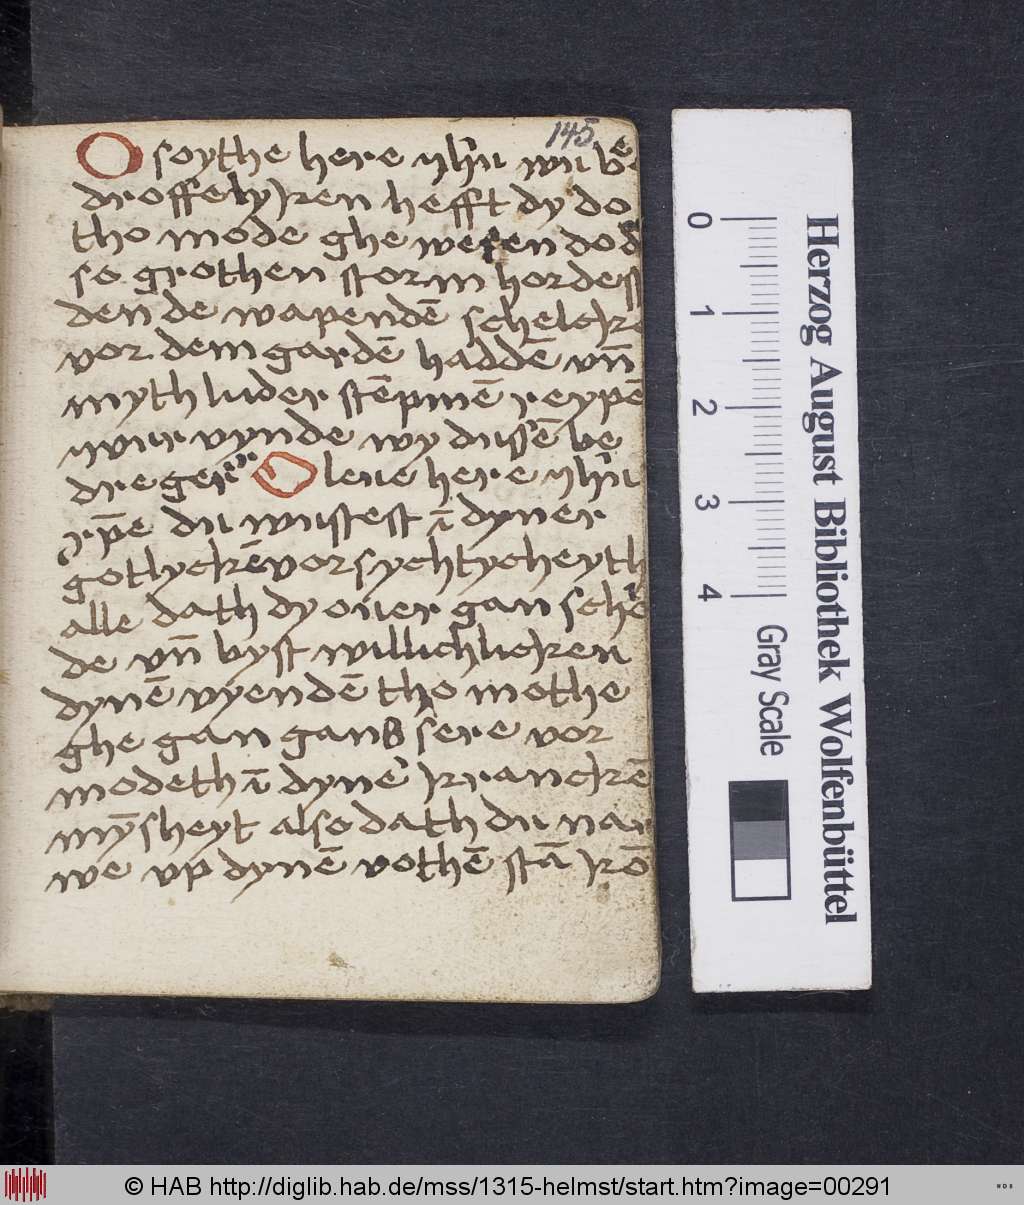 145
O soythe here ihu wu be
droffelyken hefft dy do
tho mode ghe wesen do du
so grothen storm hordest
den de wapendē schelcke
vor dem gardē haddē vn̄
myth luder stēpmē reypē
wur vynde wy dussē be
dreger O leue here ihu
xp̄e du wustest ī dyner
gotlyckē vorsychtycheyth
alle dath dy ouer gan schol
de vn̄ byst willichlicken
dynē vyendē tho mothe
ghe gan ganß sere vor
modeth ī dyner kranckē
mȳsheyt also dath du nau
we vp dynē vothē stā kō
Herzog August Bibliothek Wolfenbüttel
0 1 2 3 4
Gray Scale
© HAB http://diglib.hab.de/mss/1315-helmst/start.htm?image=00291